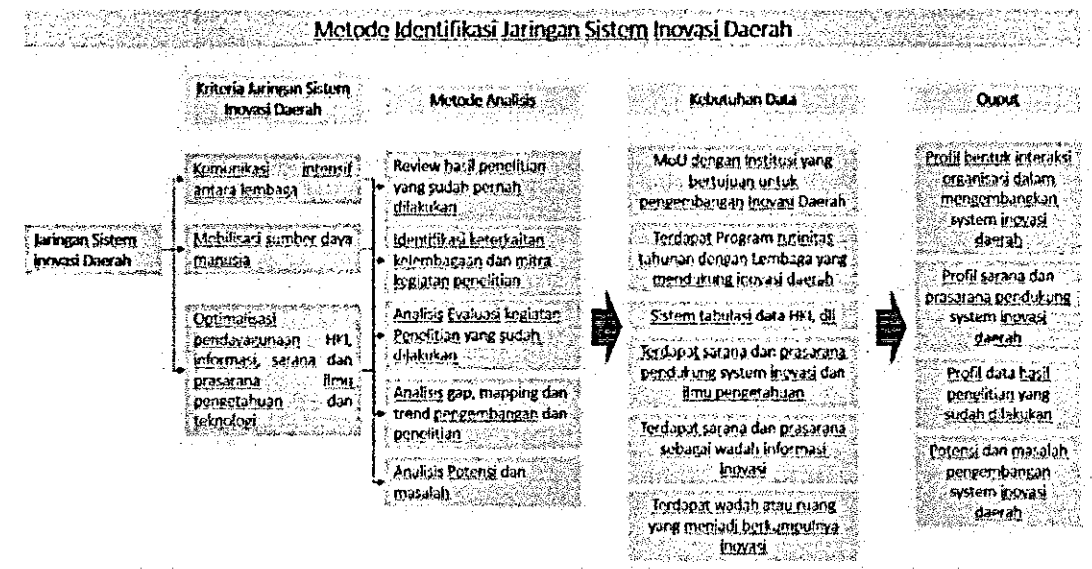 Metode Identifikasi Jaringan Sistem Inovasi Daerah
Kriteria Jaringan Sistem
Inovasi Daerah
Metode Analisis
Kebutuhan Data
Ouput
Jaringan Sistem
inovasi Daerah
Komunikasi intensif
antara lembaga
Mobilisasi sumber daya
manusia
Optimalisasi
pendayagunaan HKI,
informasi, sarana dan
prasarana ilmu
pengetahuan dan
teknologi
Review hasil penelitian
yang sudah pernah
dilakukan
Identifikasi keterkaitan
kelembagaan dan mitra
kegiatan penelitian
Analisis Evaluasi kegiatan
Penelitian yang sudah
dilakukan
Analisis gap, mapping dan
trend pengembangan dan
penelitian
Analisis Potensi dan
masalah
MoU dengan Institusi yang
bertujuan untuk
pengembangan Inovasi Daerah
Terdapat Program rutinitas
tahunan dengan Lembaga yang
mendukung inovasi daerah
Sistem tabulasi data HKI, dll
Terdapat sarana dan prasarana
pendukung system inovasi dan
ilmu pengetahuan
Terdapat sarana dan prasarana
sebagai wadah informasi
inovasi
Terdapat wadah atau ruang
yang menjadi berkumpulnya
inovasi
Profil bentuk interaksi
organisasi dalam
mengembangkan
system inovasi
daerah
Profil sarana dan
prasarana pendukung
system inovasi
daerah
Profil data hasil
penelitian yang
sudah dilakukan
Potensi dan masalah
pengembangan
system inovasi
daerah